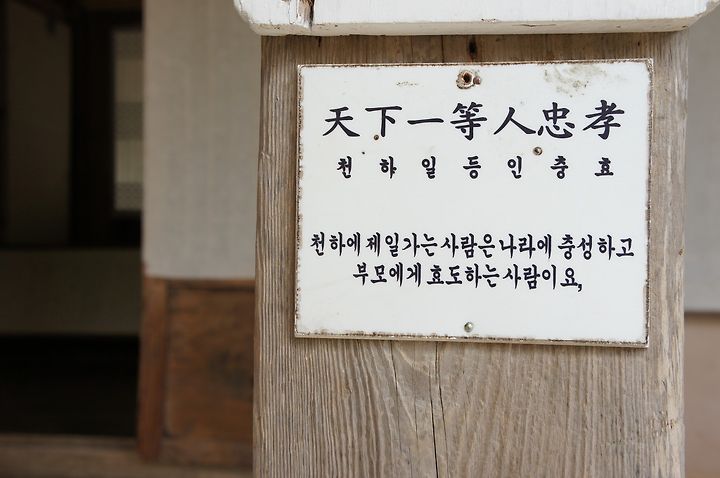 天下一等人忠孝
천하일등인충효
천하에 제일가는 사람은 나라에 충성하고
부모에게 효도하는 사람이요,